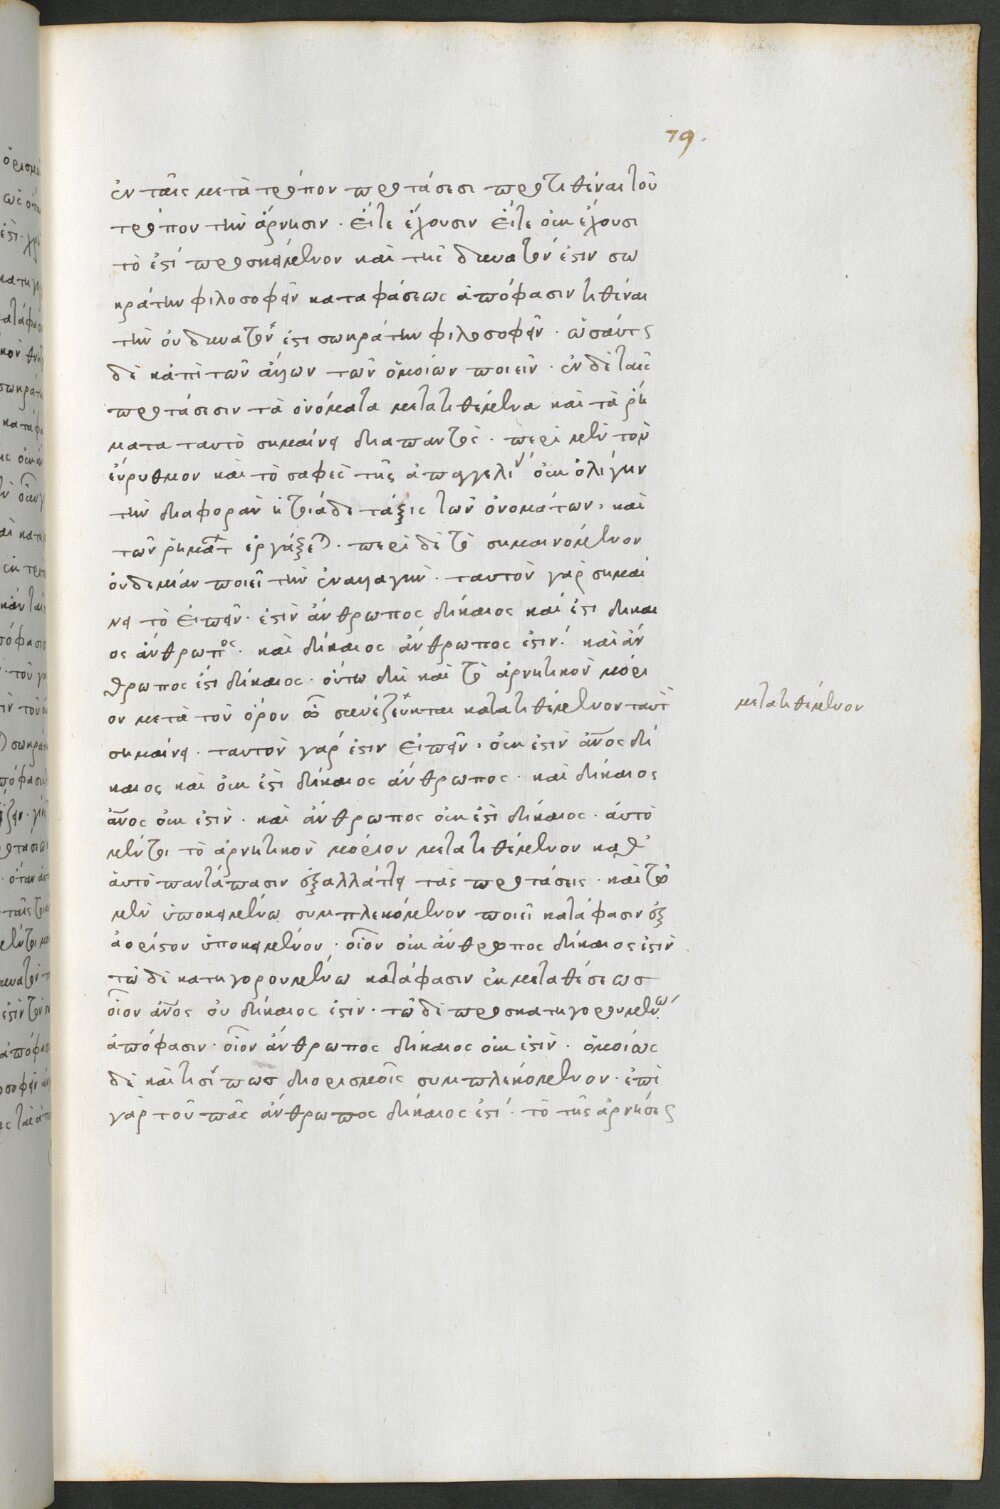 79.
ἐν ταῖς μετὰ τρόπου προτάσεσι προστιθέναι τοῦ
τρόπου τὴν ἄρνησιν · εἴτε ἔχουσιν εἴτε οὐκ ἔχουσι
τὸ ἐστὶ προσκείμενον καὶ τῆς δυνατόν ἐστιν σω
κράτην φιλοσοφεῖν καταφάσεως ἀπόφασιν τιθέναι
τὴν οὐ δυνατόν ἐστι σωκράτην φιλοσοφεῖν · ὡσαύτως
δὲ κἀπὶ τῶν ἄλλων τῶν ὁμοίων ποιεῖν · ἐν δὲ ταῖς
προτάσεσιν τὰ ὀνόματα μετατιθέμενα καὶ τὰ ῥή
ματα ταυτὸ σημαίνει διαπαντός · περὶ μὲν τὸν
εὔρυθμον καὶ τὸ σαφὲς τῆς ἀπαγγελίας οὐκ ὀλίγην
τὴν διαφορὰν ἡ τοιάδε τάξις τῶν ὀνομάτων, καὶ
τῶν ῥημάτων ἐργάζεται · περὶ δὲ τὸ σημαινόμενον
οὐδεμίαν ποιεῖ τὴν ἐναλλαγήν · ταυτὸν γὰρ σημαί
νει τὸ εἰπεῖν · ἐστὶν ἄνθρωπος δίκαιος καὶ ἔστι δίκαι
ος ἄνθρωπος · καὶ δίκαιος ἄνθρωπος ἐστίν · καὶ ἄν
θρωπος ἐστὶ δίκαιος · οὕτω δὴ καὶ τὸ ἀρνητικὸν μόρι
ον μετὰ τοῦ ὅρου ᾧ συνέζευκται κατατιθέμενον ταυτὸ
σημαίνει · ταυτὸν γάρ ἐστιν εἰπεῖν, οὐκ ἐστὶν ἄνος δί
καιος καὶ οὐκ ἐστὶ δίκαιος ἄνθρωπος · καὶ δίκαιος
ἄνος οὐκ ἐστίν · καὶ ἄνθρωπος οὐκ ἐστὶ δίκαιος · αὐτὸ
μέντοι τὸ ἀρνητικὸν μόριον μετατιθέμενον καθ
αὑτὸ παντάπασιν ἐξαλλάττει τὰς προτάσεις · καὶ τῷ
μὲν ὑποκειμένω συμπλεκόμενον ποιεῖ κατάφασιν ἐξ
ἀορίστου ὑποκειμένου · οἷον οὐκ ἄνθρωπος δίκαιος ἐστὶν
τῶ δὲ κατηγορουμένω κατάφασιν ἐκ μεταθέσεως
οἷον ἄνος οὐ δίκαιος ἐστίν · τῶ δὲ προσκατηγορουμένω
ἀπόφασιν · οἷον ἄνθρωπος δίκαιος οὐκ ἐστίν · ὁμοίως
δὲ καὶ τισί πως διορισμοῖς συμπλεκόμενον · ἐπὶ
γὰρ τοῦ πᾶς ἄνθρωπος δίκαιος ἐστί · τὸ τῆς ἀρνήσεως
μετατιθέμενον